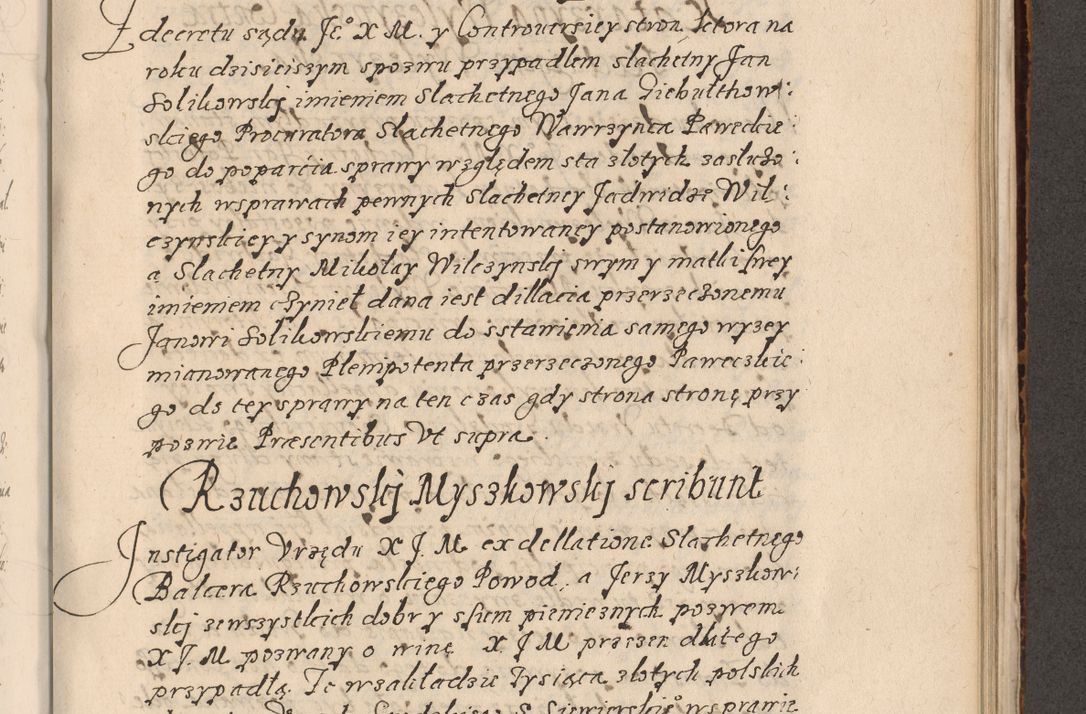 Z decretu sądu Je° X M. y Controuersiey stron, ktora na
roku dzisieiszym spozwu przypadłem slachetny Jan
Solikowskj imieniem Slachetnego Jana Giebułthow:
skiego Procuratora Slachetnego Wawrzynca Paweckie
go do poparcia sprawy względem sta złotych zasłużo:
nych wsprawach pewnych Slachetney Jadwidze Wil:
czynskiey y synom iey intentowaney postanowionego
a Slachetny Mikołay Wilczynskj swym y matki swey
imieniem czynieł dana iest dillacia przerzeczonemu
Janowi Solikowskiemu do sstawienia samego wyzey
mianowanego Plenipotenta przerzeczonego Paweczkie
go do tey sprawy na ten czas gdy strona stronę przy
pozwie Præsentibus Vt supra.
Rzuchowskj Myszkowskj scribunt
Instigator Vrzędu X J. M. ex dellatione Slachetnego
Balcera Rzuchowskiego Powod, a Jerzy Myszkow:
skj zewszystkich dobr y sum pieniężnych pozwem
X J. M pozwany o winę X J M przezen dlatego
przypadłą. Iz wzakładzie Tysiąca złotych polskich
Siewierskie° wsprawie